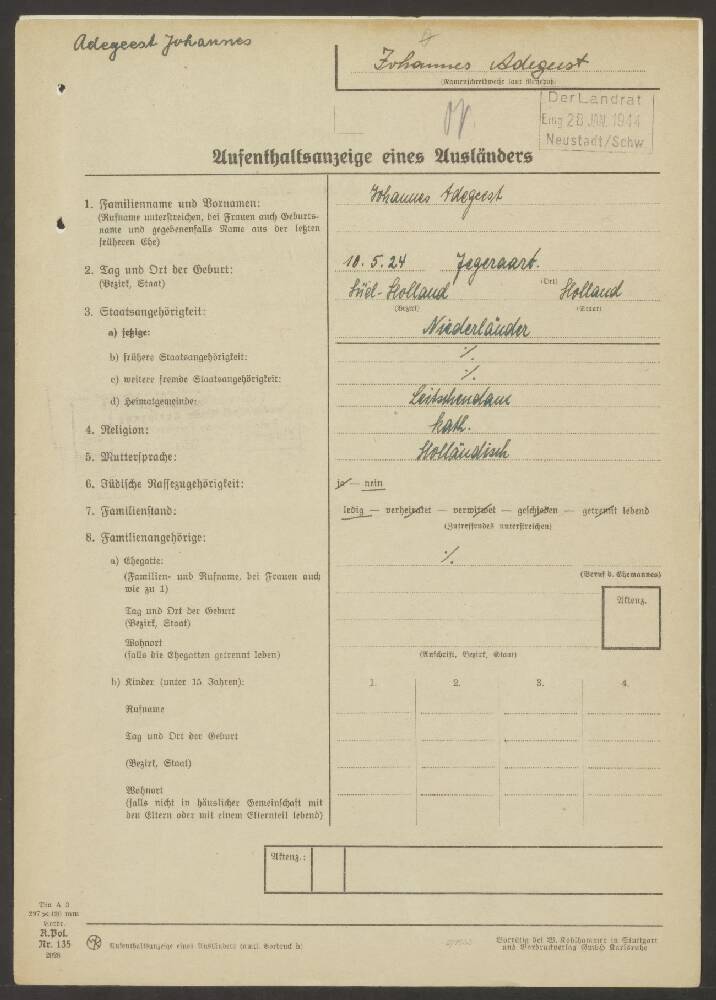 Adegeest Johannes
Johannes Adegeest
(Namensschreibweise laut Reisepaß)
Der Landrat
Eing 28 JAN. 1944
Neustadt/Schw.
Aufenthaltsanzeige eines Ausländers
1. Familienname und Vornamen: Johannes Adegeest
(Rufname unterstreichen, bei Frauen auch Geburts-
name und gegebenenfalls Name aus der letzten
früheren Ehe)
2. Tag und Ort der Geburt: 10. 5. 24 Jegeraart.
(Bezirk, Staat) Süd-Holland (Ort) Holland
(Bezirk) (Staat)
3. Staatsangehörigkeit:
a) jetzige: Niederländer
b) frühere Staatsangehörigkeit: ⁒
c) weitere fremde Staatsangehörigkeit: ⁒
d) Heimatgemeinde: Leitschendam
4. Religion: kath.
5. Muttersprache: Holländisch
6. Jüdische Rassezugehörigkeit: ja — nein
7. Familienstand: ledig — verheiratet — verwitwet — geschieden — getrennt lebend
(Zutreffendes unterstreichen)
8. Familienangehörige:
a) Ehegatte: ⁒
(Familien- und Rufname, bei Frauen auch (Beruf d. Ehemannes)
wie zu 1)
Aktenz.
Tag und Ort der Geburt
(Bezirk, Staat)
Wohnort
(falls die Ehegatten getrennt leben) (Anschrift, Bezirk, Staat)
b) Kinder (unter 15 Jahren): 1. 2. 3. 4.
Rufname
Tag und Ort der Geburt
(Bezirk, Staat)
Wohnort
(falls nicht in häuslicher Gemeinschaft mit
den Eltern oder mit einem Elternteil lebend)
Aktenz.:
Din A 3
297 × 420 mm
R.Pol.
Nr. 135
2028
Aufenthaltsanzeige eines Ausländers (amtl. Vordruck b)
Vorrätig bei W. Kohlhammer in Stuttgart
und Vordruckverlag GmbH Karlsruhe